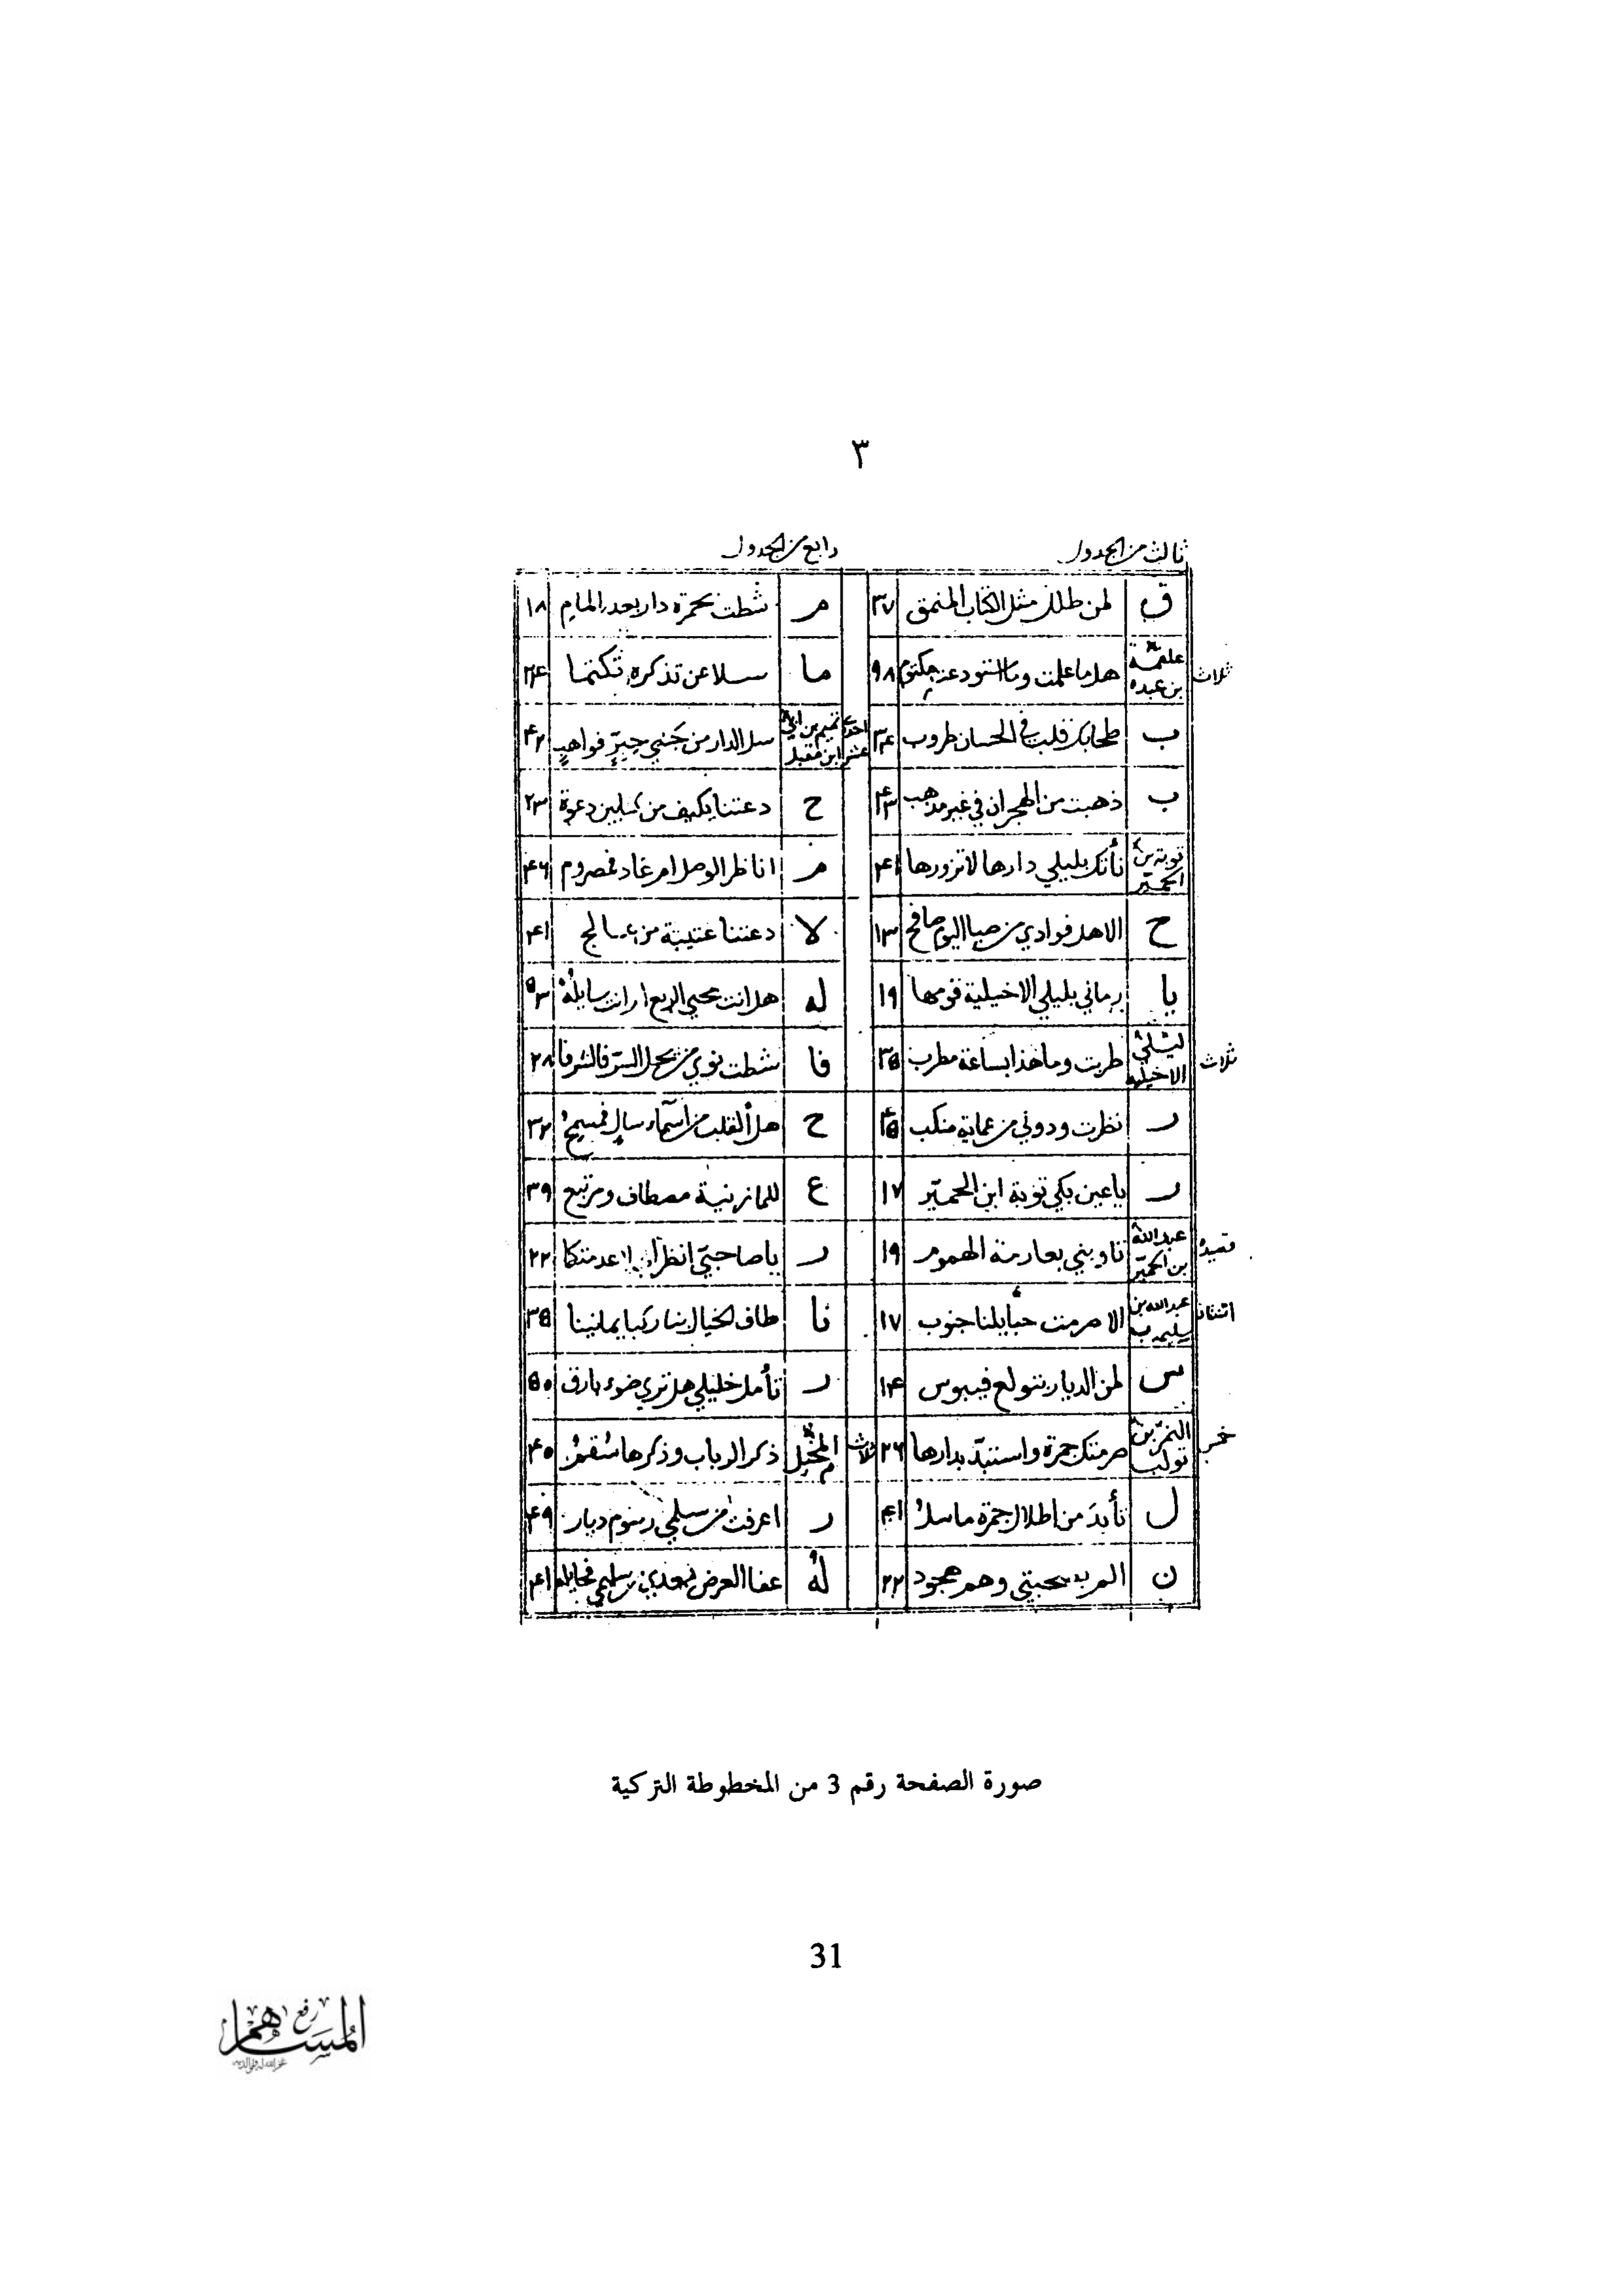 ٣
ثالث من الجدول
ق لمن طلل مثل الكتاب المنمق ٣٧
ثلاث علقمة بن عبده هل ما علمت وما استودعت مكتوم ٩٨
ب طحا بك قلب في الحسان طروب ٣٤
ب ذهبت من الهجران في غير مذهب ٤٣
توبة بن الحمير نأتك بليلي دارها لا تزورها ٤١
ح الا هل فوادي من صبا اليوم صافح ١٣
يا رماني بليلي الاخيلية قومها ١٩
ثلاث ليلى الاخيليه طربت وما هذا بساعة مطرب ٣٥
ر نظرت ودوني من عماية منكب ٤٥
ر يا عين بكي توبة ابن الحمير ١٧
قصيده عبدالله بن الحمير تاوبني بعارمة الهموم ١٩
اثنتان عبدالله بن سليم ب الا صرمت حبايلنا جنوب ١٧
س لمن الديار بتولع فيبوس ١٤
خمس النمر بن تولب صرمتك جمرة واستبد بدارها ٢٦
ل تأبد من اطلال جمرة ماسل ٤١
ن الم بصحبتي وهم هجود ٢٢
رابع من الجدول
م شطت بجمرة دار بعد المام ١٨
ما سلا عن تذكره تكتما ٣٤
احدى عشر تميم بن ابي ابن مقبل سل الدار من جنبي حبر فواهب ٤٢
ح دعتنا بكهف من دعوة ٢٣
م اناظر الوصل ام غاد فمصروم ٤٦
لا دعتنا عتيبة من عالج ٤١
له هل انت محيي الربع ام انت سايله ٥٣
فا شطت نوي من يحل السر فالشرفا ٢٨
ح هل القلب من اسماء سال فمسمح ٣٢
ع للمازنية مصطاف ومرتبع ٣٩
ر يا صاحبي انظراني لا عدمتكا ٢٢
نا طاف الخيال بنا ركبا يمانينا ٣٥
ر تأمل خليلي هل تري ضوء بارق ٥٠
ثلاث المخبل م ذكر الرباب وذكرها سقم ٤٠
ر اعرفت من سلمي رسوم ديار ٤٩
له عفا العرض بعدي من سليمي فحايله ٤١
صورة الصفحة رقم 3 من المخطوطة التركية
31
رفع المساهم
غفر الله له ولوالديه